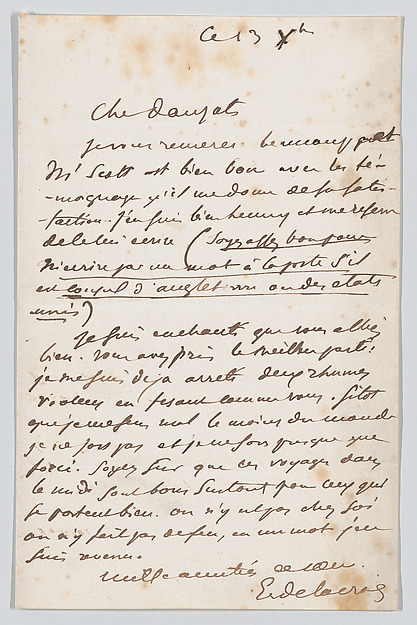 Ce 13 Xb
Cher Dauzats
je vous remercie beaucoup et
Mr Scott est bien bon avec les té-
-moignages qu'il me donne de sa satis-
-faction. j'en suis bien heureux et me réserve
de le lui écrire (Soyez assez bon pour
m'écrire par un mot à la poste s'il
est consul d'angleterre ou des états
unis)
Je suis enchanté que vous alliez
bien. vous avez pris le meilleur parti:
je me suis déjà arrêté deux rhumes
violens en fesant comme vous. Sitot
que je me sens mal le moins du monde
je ne sors pas et je ne sors presque que
forcé. Soyez sur que ces voyages dans
le midi sont bons surtout pour ceux qui
se portent bien. on n'y est pas chez soi
on n'y fait pas de feu, en un mot j'en
suis revenu.
mille amitiés de cœur.
Eug Delacroix